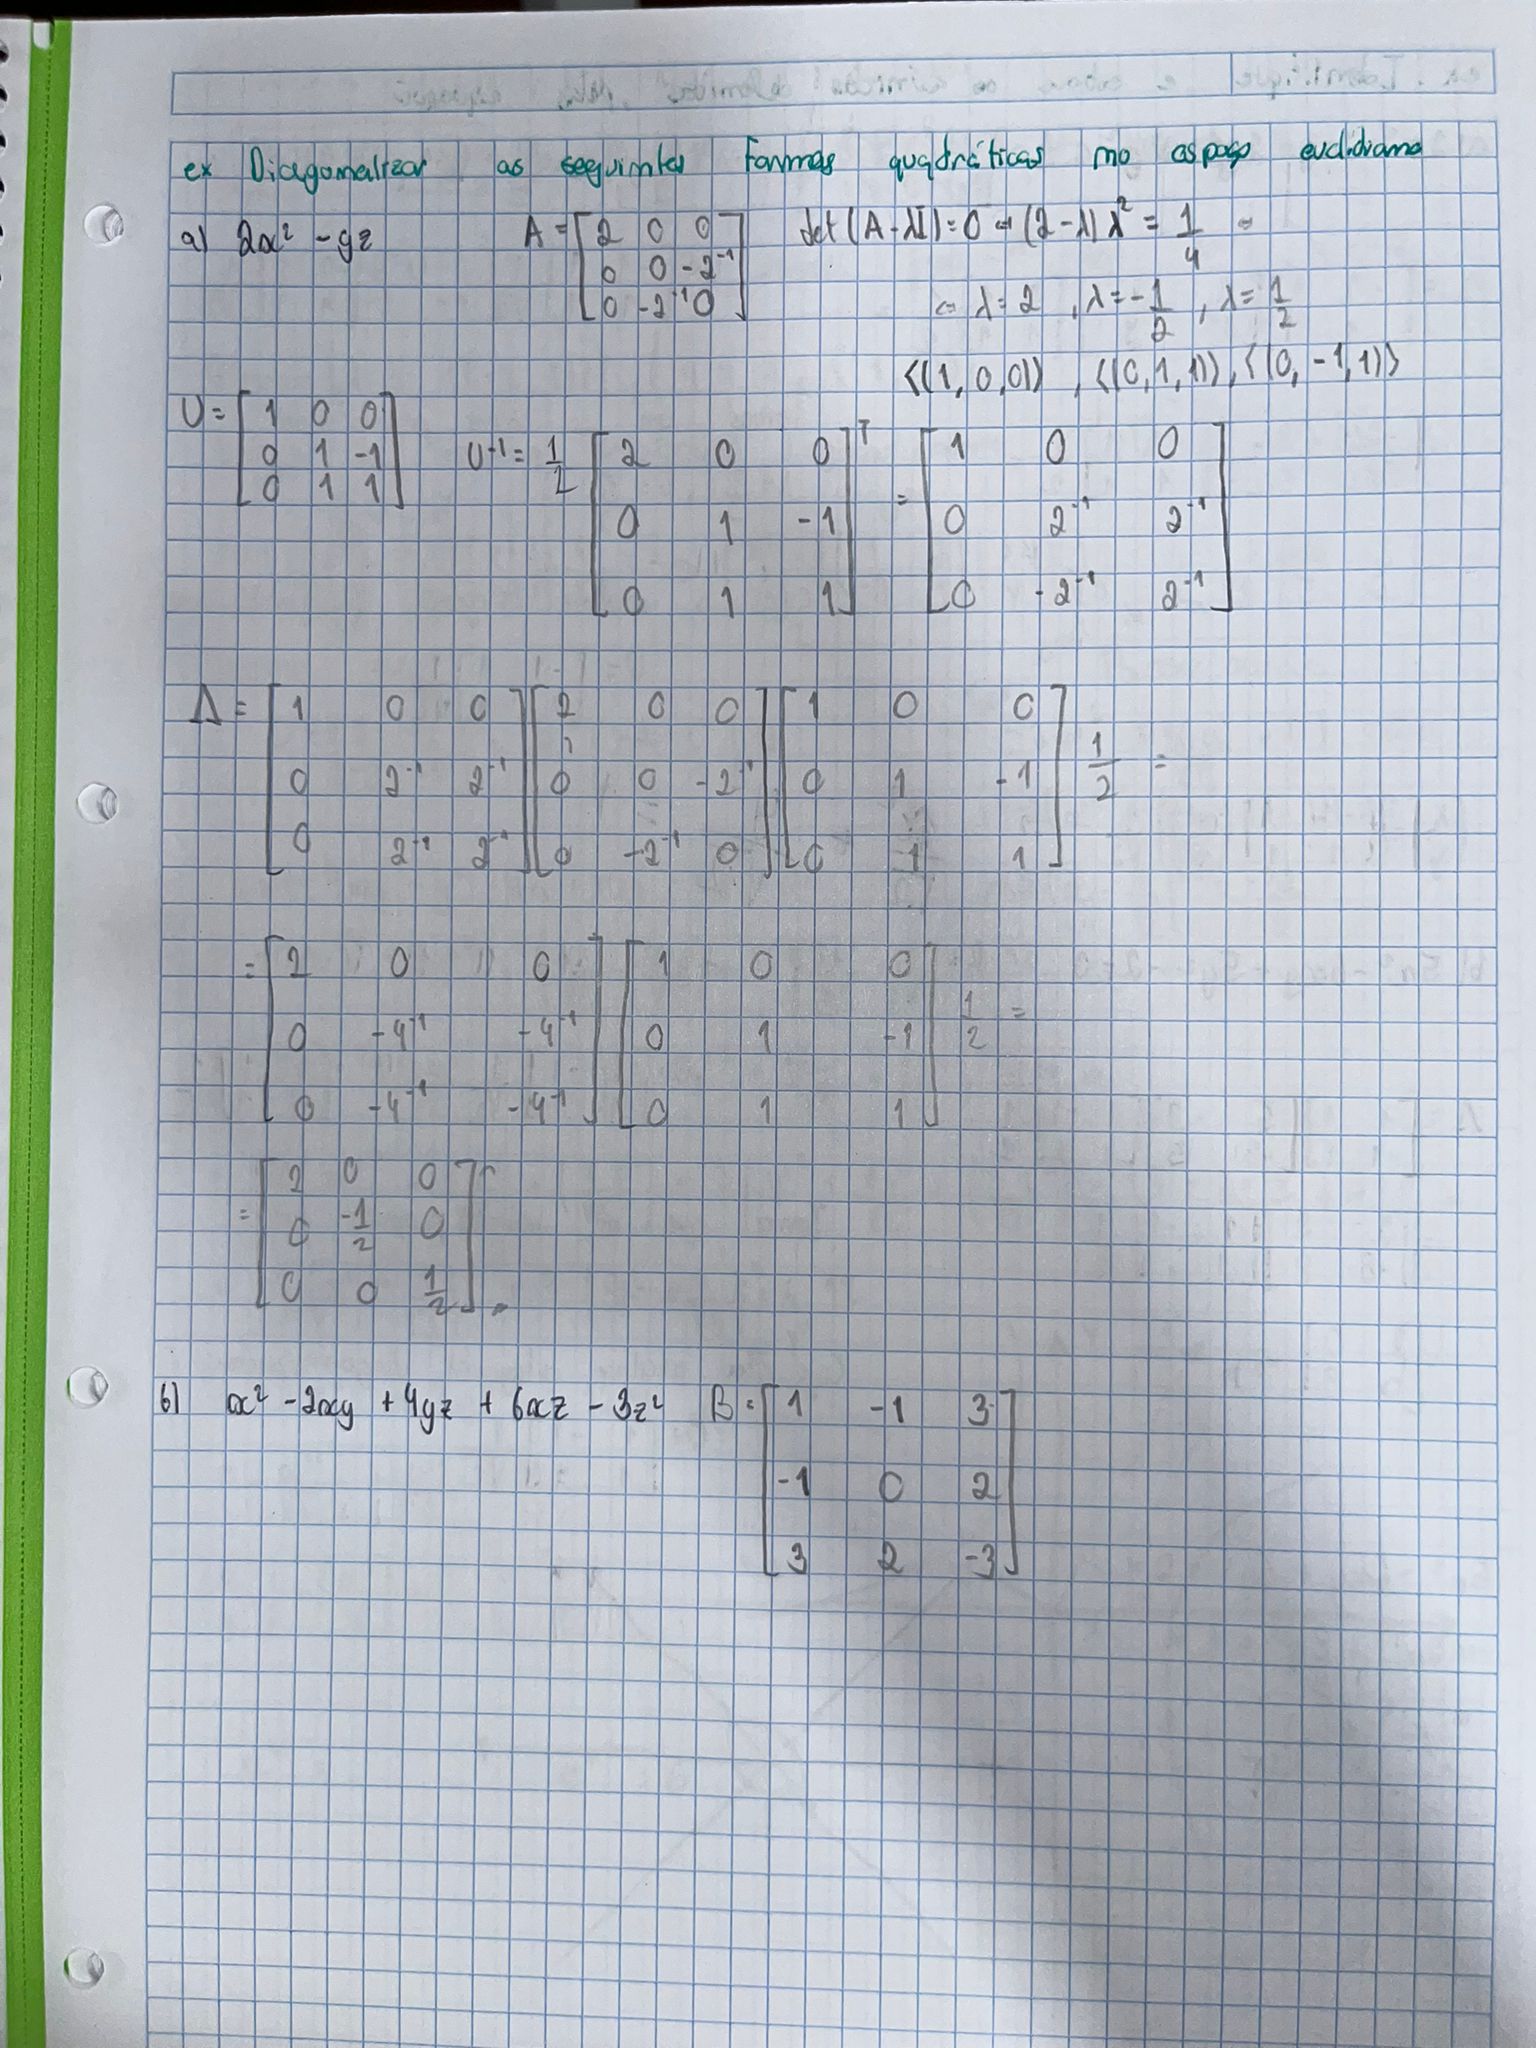 ex Diagonalizar as seguintes Formas quadráticas no espaço euclidiano
a) 2x² - yz A = [2 0 0; 0 0 -2⁻¹; 0 -2⁻¹ 0] det(A-λI)=0 ⇔ (2-λ)λ² = 1/4 ⇔
⇔ λ=2 , λ=-1/2 , λ=1/2
<(1,0,0)> , <(0,1,1)>, <(0,-1,1)>
U = [1 0 0; 0 1 -1; 0 1 1] U⁻¹ = 1/2 [2 0 0; 0 1 -1; 0 1 1]ᵀ = [1 0 0; 0 2⁻¹ 2⁻¹; 0 -2⁻¹ 2⁻¹]
Λ = [1 0 0; 0 2⁻¹ 2⁻¹; 0 2⁻¹ 2⁻¹] [2 0 0; 0 0 -2⁻¹; 0 -2⁻¹ 0] [1 0 0; 0 1 -1; 0 1 1] 1/2 =
= [2 0 0; 0 -4⁻¹ -4⁻¹; 0 -4⁻¹ -4⁻¹] [1 0 0; 0 1 -1; 0 1 1] 1/2 =
= [2 0 0; 0 -1/2 0; 0 0 1/2]
b) x² - 2xy + 4yz + 6xz - 3z² B = [1 -1 3; -1 0 2; 3 2 -3]